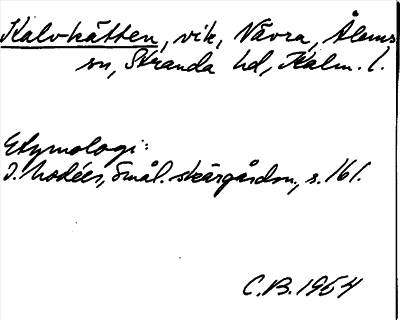 Kalvkätten, vik, Vävra, Ålems
sn, Stranda hd, Kalm. l.
Etymologi:
I. Modéer, Smål. skärgårdsn., s. 161.
C.B. 1964